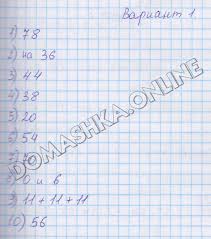 Вариант 1
1) 78
2) на 36
3) 44
4) 38
5) 20
6) 54
7)
8) 0 и 6
9) 11 + 11 + 11
10) 56
DOMASHKA.ONLINE